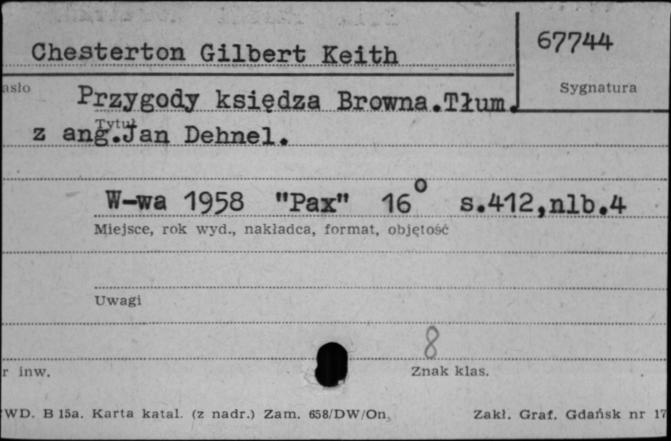 67744
Chesterton Gilbert Keith
Sygnatura
asło
Przygody księdza Browna.Tłum.
Tytuł
z ang.Jan Dehnel.
W-wa 1958 "Pax" 16° s.412,nlb.4
Miejsce, rok wyd., nakładca, format, objętość
Uwagi
8
r inw. Znak klas.
WD. B 15a. Karta katal. (z nadr.) Zam. 658/DW/On. Zakł. Graf. Gdańsk nr 17